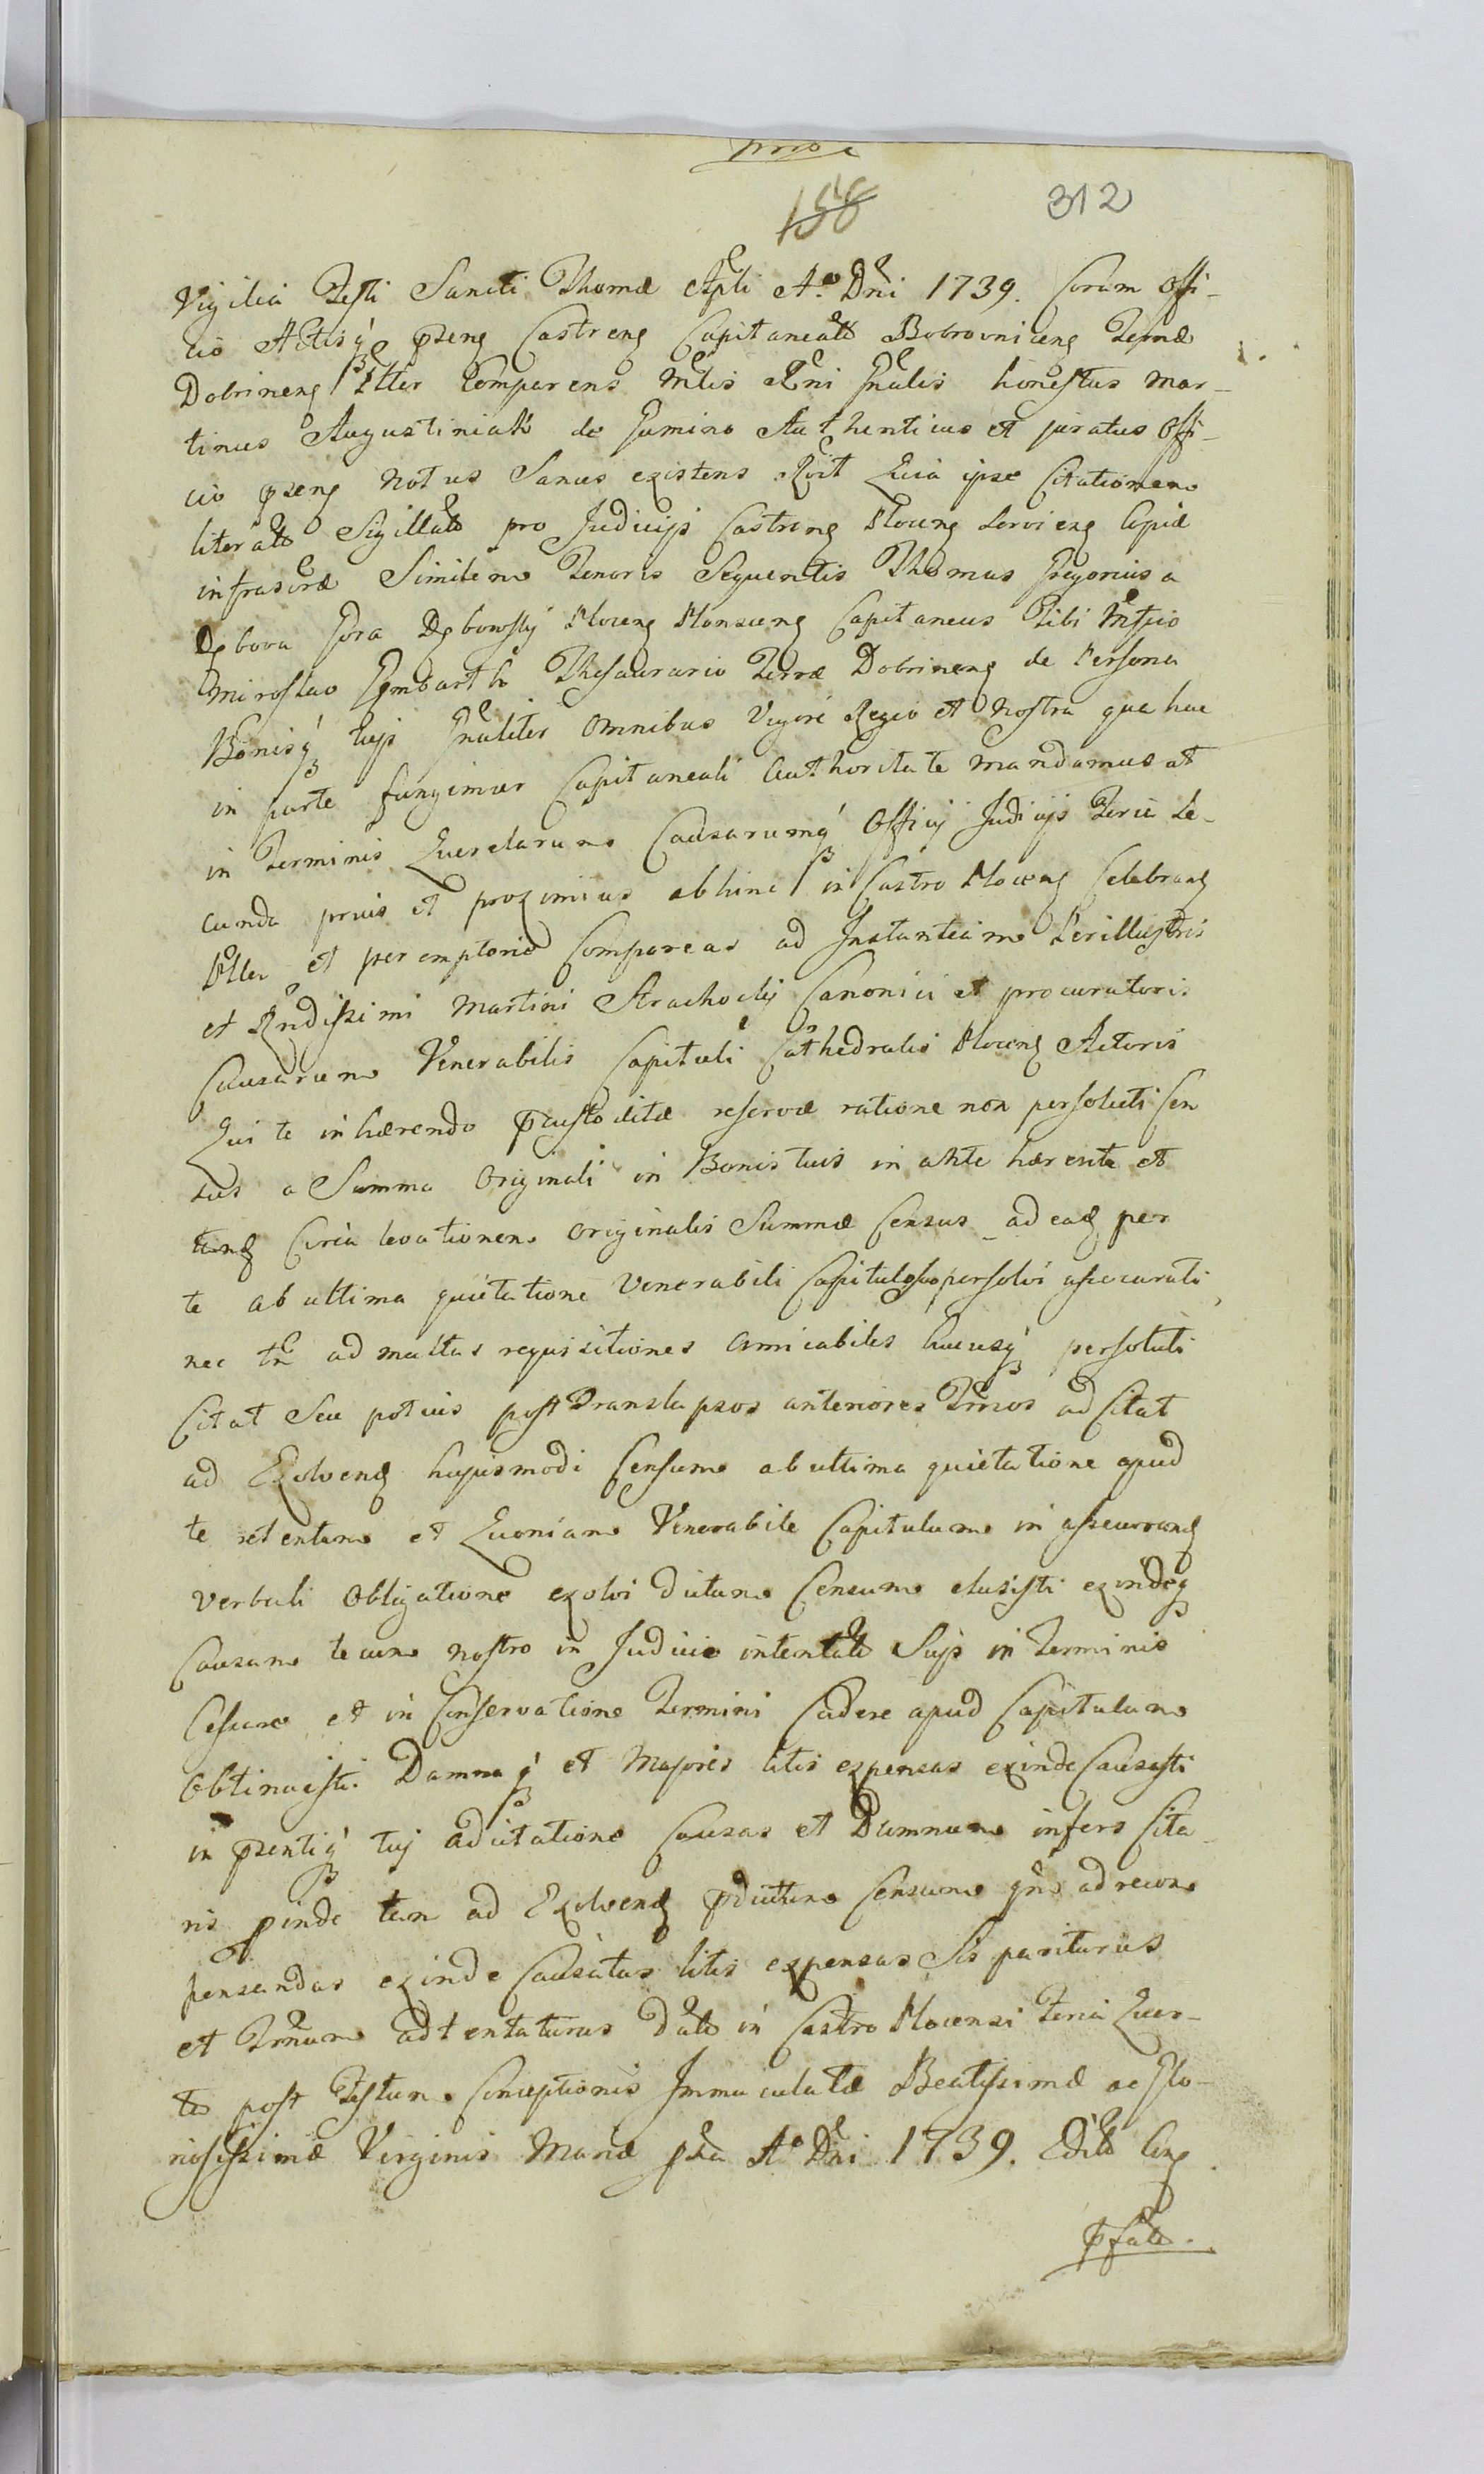 158
312
Vigilia Festi Sancti Thomæ Apli A.o Dni 1739. Coram Offi-
cio Actisq́ pseng Castreng Capitaneati Bobrovniceng Terræ
Dobrineng Pltter Comparens Mtlis Rni Gnalis honestus Mar-
tinus Augustiniak de Gumino Authenticus et juratus Offi-
cio pseng notus Sanus existens Rōit Quia ipse Citationem
literatt Sigillatt pro Judicijs Castreng Ploceng Servieng Copiæ
infrascræ Similem Tenoris Sequentis Thomas Gregorius a
Dębova Gora Dębowsky Ploceng Plonsceng Capitaneus Tibi Mfico
Miroslao Gembarth Thesaurario Terræ Dobrineng de Persona
Bonisq́ tuis Gnaliter Omnibus Vigore Regio et Nostra qua hac
in parte fungimur Capitaneali Authoritate Mandamus ut
in Terminis Querelarum Causarumq́ Officij Judicijs Feria Se-
cunda pruis et proximius abhinc in Castro Ploceng Celebrang
Pltter et peremptorie Compareas ad Instantiam Perillustris
et Rndissimi Martini Strachocky Canonici et procuratoris
Causarum Venerabilis Capituli Cathedralis Ploceng Actoris
Qui te inhærendo pcustoditæ reservæ ratione non persoluti Cen
sus a Summa Originali in Bonis tuis in ante hærente et
tang Circa levationem Originalis Summæ Census ad eag per
te ab ultima quietatione Venerabili Capitulo suo persolvi assecurati
nec tn ad multas requisitiones amicabiles hucusq́ persoluti
Citat Seu potius post Translapsos anteriores Trnos ad Citat
ad Exolveng hujusmodi Censum ab ultima quietatione apud
te retentum et Quoniam Venerabile Capitulum in assecurang
verbali Obligatione exolvi dictum Censum elusisti exindeq
Causam tecum nostro in Judicio intentatt Suis in Terminis
Cesure et in Conservatione Termini Cadere apud Capitulum
Obtinuisti. Damnaq́ et Majores litis expensas exinde Causasti
in psentiq́ tuj adcitatione Causas et Damnum infers Cita-
ris pinde tam ad Exolveng pdictum Censum qm ad recom
pensandas exinde Causatas litis expensas Sis pariturus
et Trnum adtentaturus Datt in Castro Plocensi Feria Quar-
ta post Festum Conceptionis Immaculatæ Beatissimæ ac Glo-
riosissimæ Virginis Mariæ pxa A.o Dni 1739. Editt Cing
psatt.